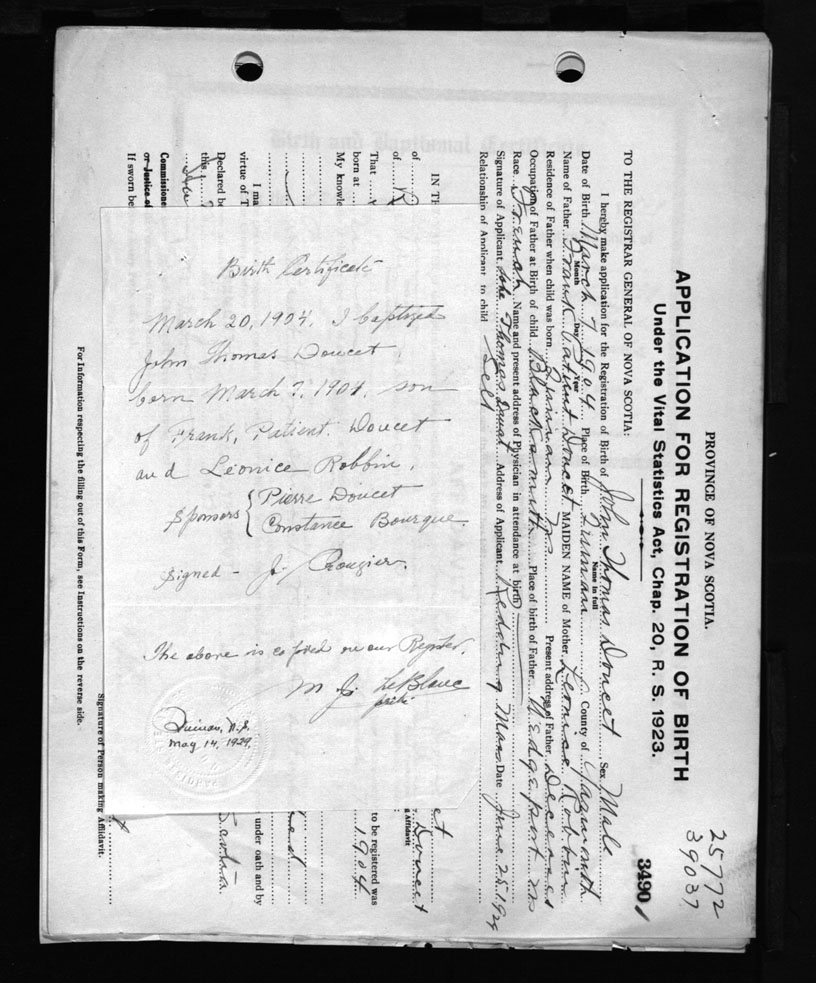 PROVINCE OF NOVA SCOTIA.
APPLICATION FOR REGISTRATION OF BIRTH
Under the Vital Statistics Act, Chap. 20, R. S. 1923.
25772
39037
3490
TO THE REGISTRAR GENERAL OF NOVA SCOTIA:
I hereby make application for the Registration of Birth of John Thomas Doucet Sex Male
Name in full
Date of Birth March 7 1904 Place of Birth County of Yarmouth
Month Day Year
Name of Father Frank Patient Doucet MAIDEN NAME of Mother Leonice Robbin
Residence of Father when child was born Quinan Present address of Father Deceased
Occupation of Father at Birth of child Blacksmith Place of birth of Father Wedgeport NS
Race French Name and present address of Physician in attendance at birth
Signature of Applicant John Thomas Doucet Address of Applicant Reading Mass Date June 25 1929
Relationship of Applicant to child Self
IN TH
of
of
That
born at
My knowle
I ma
virtue of T
Declared be
this
Commissione
or Justice of
If sworn be
Birth Certificate
March 20, 1904, I baptized
John Thomas Doucet,
born March 7, 1904, son
of Frank, Patient. Doucet
and Leonice Robbin,
Sponsors { Pierre Doucet
Constance Bourque.
Signed - J. Rougier.
The above is copied on our Register.
M J. LeBlanc
Quinan, N.S.
May 14, 1929.
et
Doucet
Affidavit
to be registered was
1904
under oath and by
Signature of Person making Affidavit.
For Information respecting the filling out of this Form, see Instructions on the reverse side.